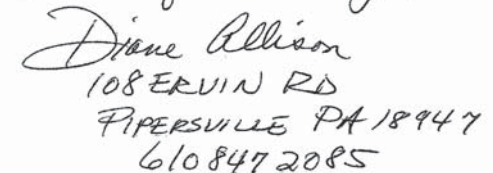 Diane Allison
108 ERVIN RD
PIPERSVILLE PA 18947
610 847 2085